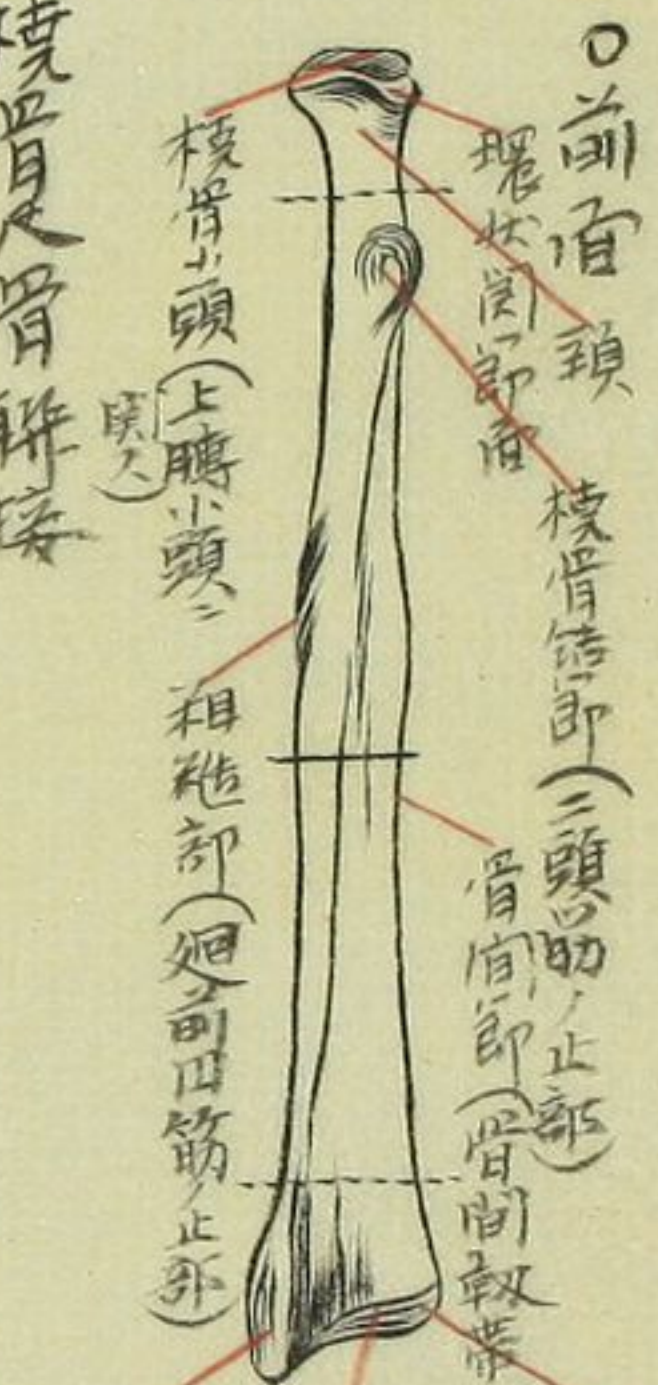 ○前面
頚
環状関節面
橈骨結節(二頭筋ノ止部)
骨間節(骨間靱帯
橈骨小頭(上膊小頭ニ
関ス)
粗糙部(廻前円筋ノ止部)